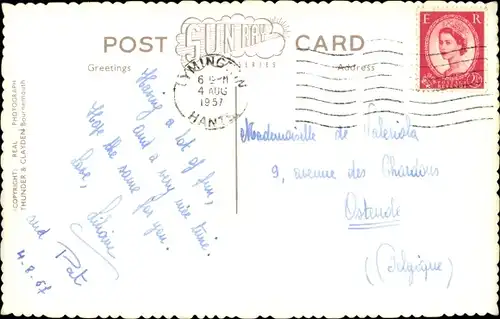 POST CARD
SUN RAY
Greetings
Address
LYMINGTON
4 AUG
1957
HANTS
E R
2½D
COPYRIGHT: REAL PHOTOGRAPH
THUNDER & CLAYDEN Bournemouth
Having a lot of fun,
and a very nice time.
Hope the same for you.
Love, Liliane
and Pat
4-8-57
Mademoiselle de
9, avenue des Chardons
Ostende
(Belgique)